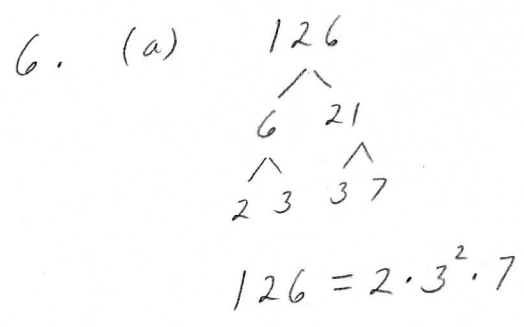 6. (a) 126
6 21
2 3 3 7
126 = 2·3²·7